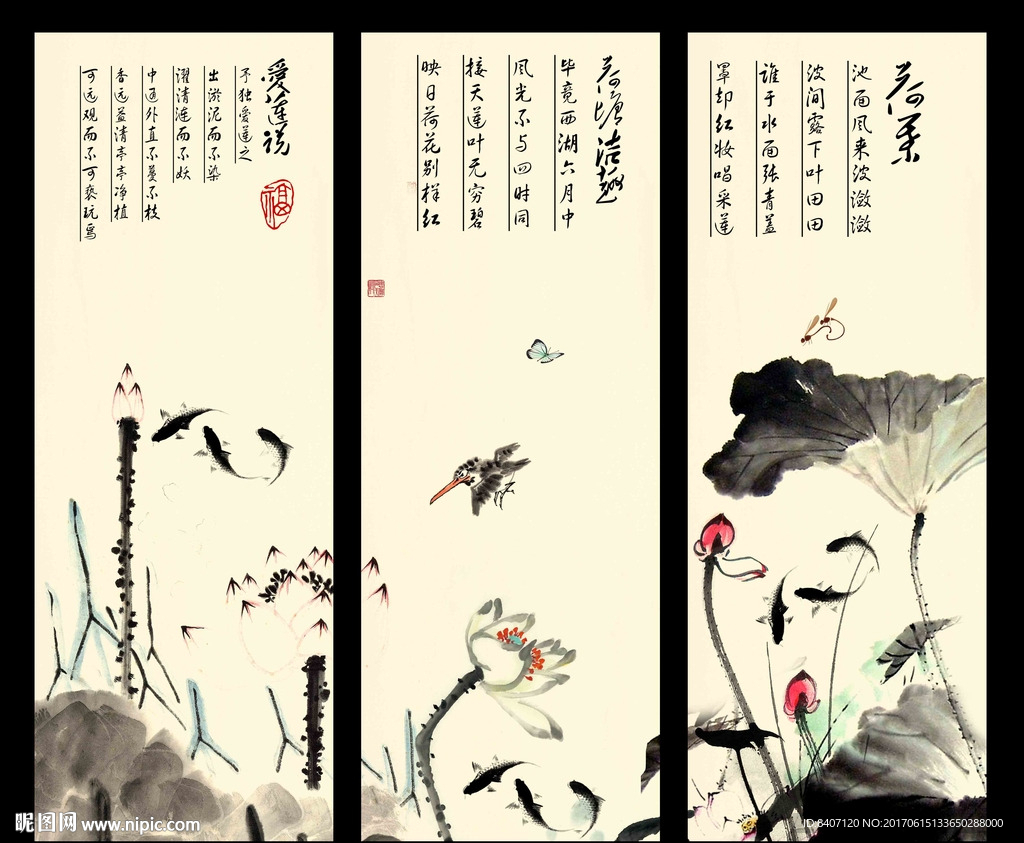 愛莲说
予独爱莲之
出淤泥而不染
濯清涟而不妖
中通外直不蔓不枝
香远益清亭亭净植
可远观而不可亵玩焉
福
荷塘洁趣
毕竟西湖六月中
风光不与四时同
接天莲叶无穷碧
映日荷花别样红
荷葉
池面风来波潋潋
波间露下叶田田
谁于水面张青盖
罩却红妆唱采莲
昵图网 www.nipic.com
ID:6407120 NO:20170615133650288000